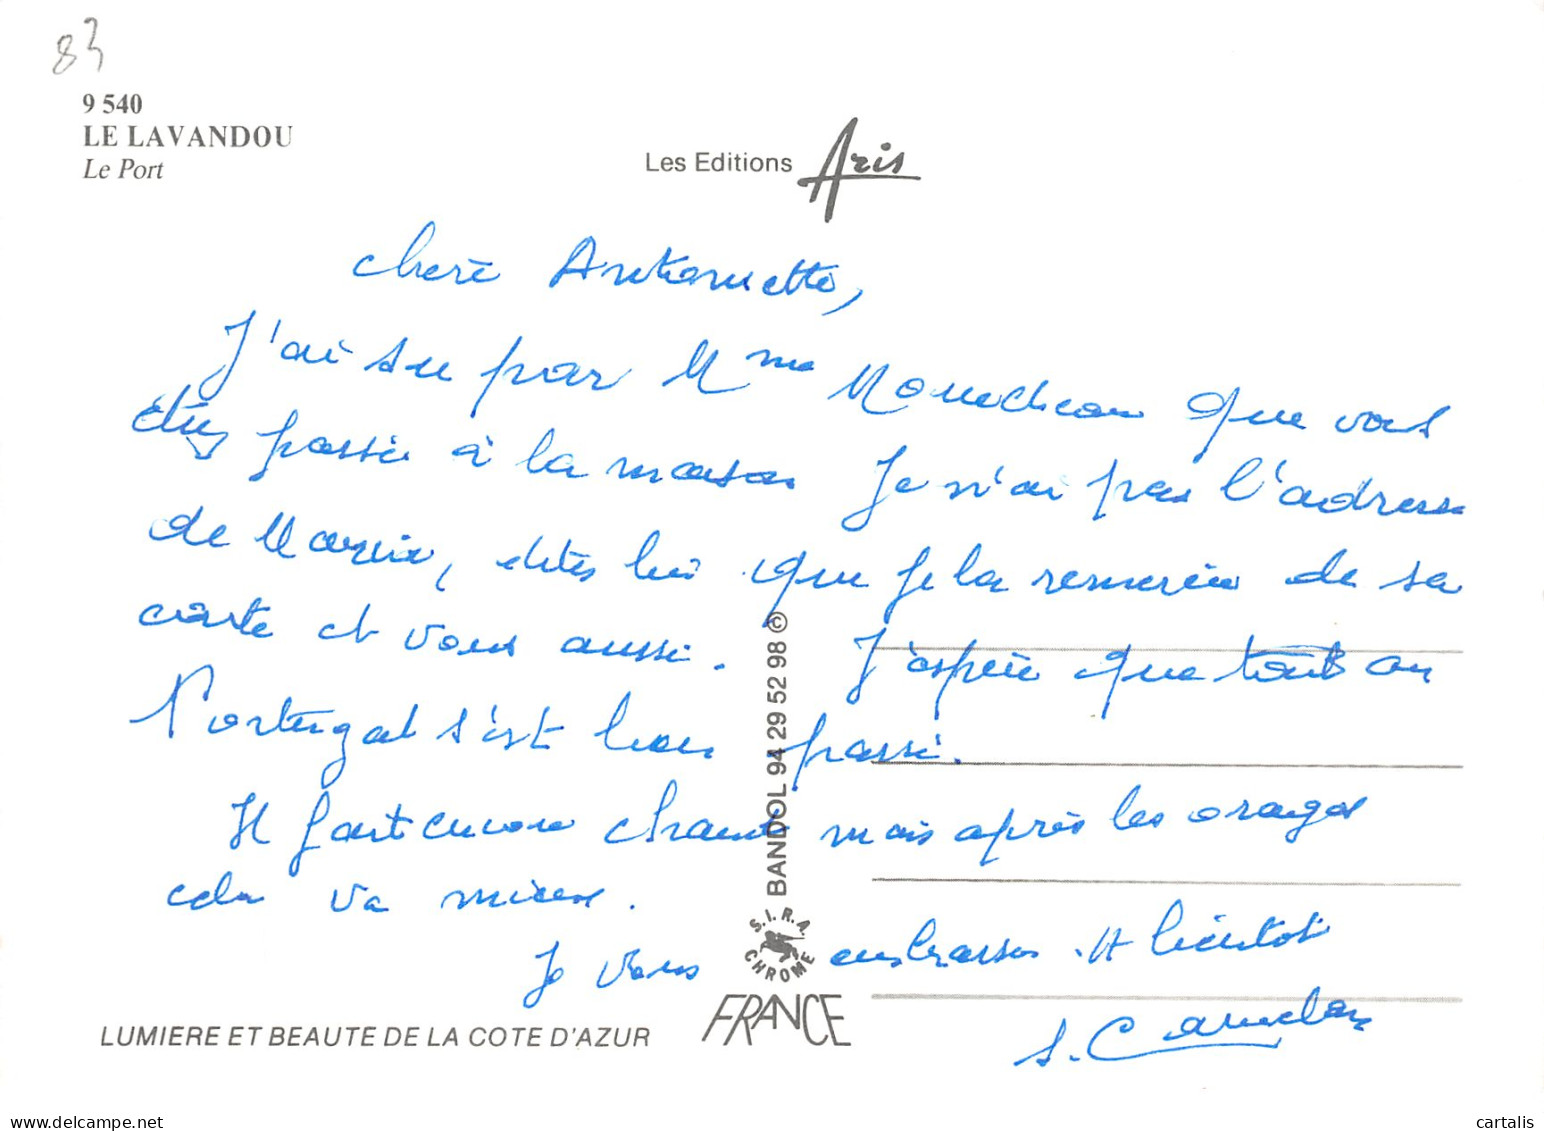 83
9 540
LE LAVANDOU
Le Port
Les Editions Aris
chère Antoinette,
J'ai su par Mme que vous
étiez passée à la maison Je n'ai pas l'adresse
de Maria, dites lui que je la remercie de sa
carte et vous aussi. J'espère que tout au
Portugal s'est bien passé.
Il fait encore chaud mais après les orages
cela va mieux.
Je vous embrasse. A bientôt
BANDOL 94 29 52 98 ©
S.I.R.A. CHROME
FRANCE
LUMIERE ET BEAUTE DE LA COTE D'AZUR
delcampe.net
cartalis